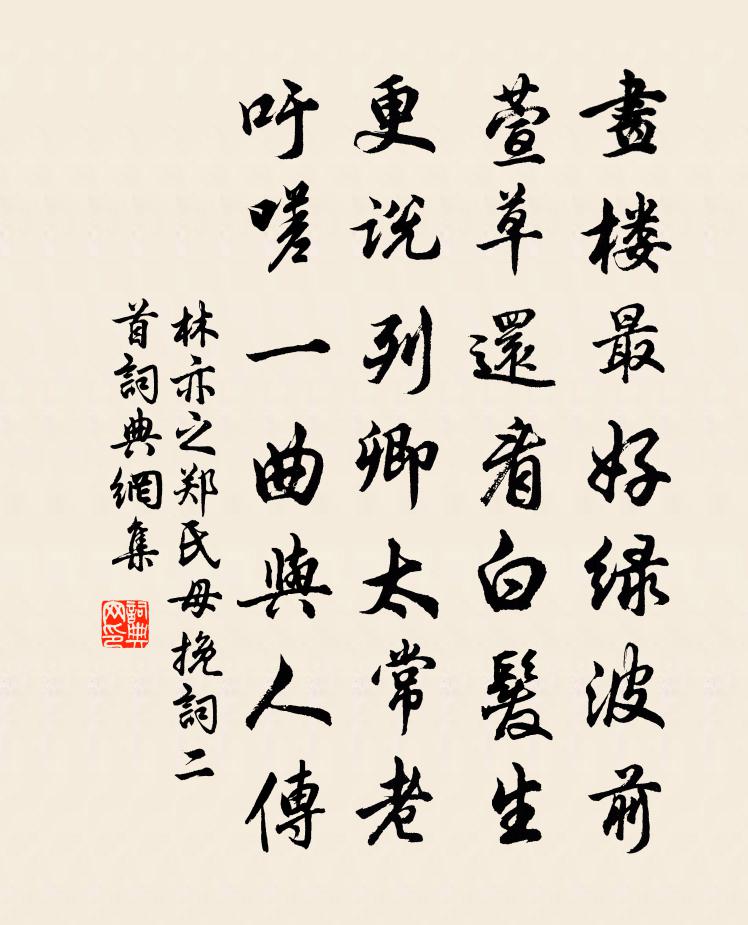 畫楼最好緑波前
萱草還看白髮生
更说列卿太常老
吁嗟一曲與人傳
林亦之郑氏母挽詞二
首詞典網集
詞典网印